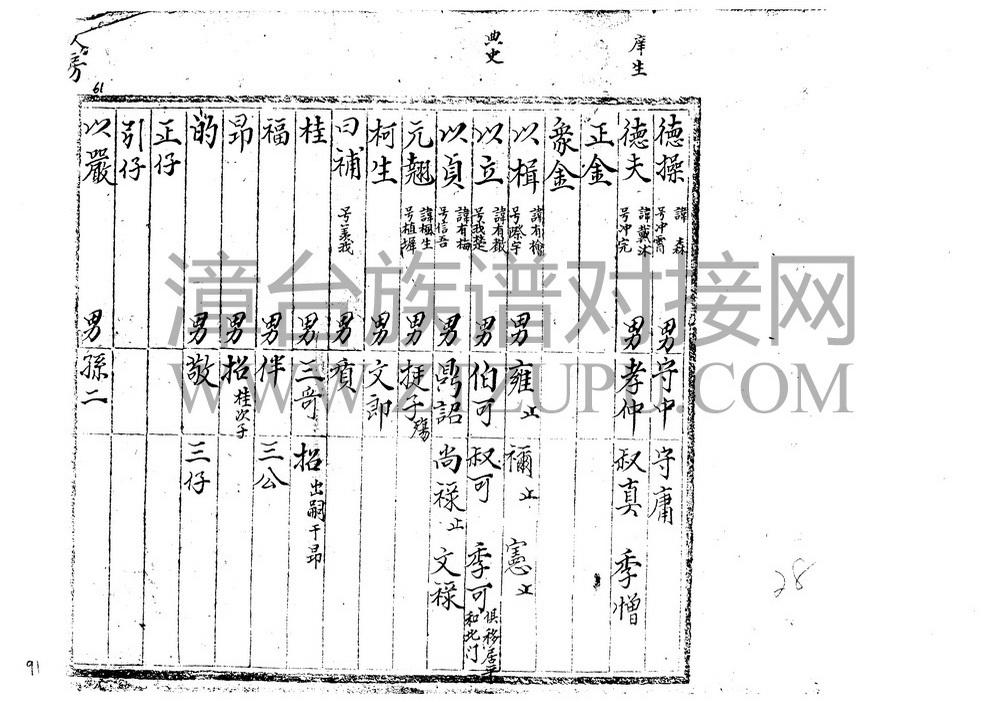 庠生
典史
房
61
德操 諱森 号冲霄 男守中 守庸
德夫 諱戴沐 号冲完 男孝仲 叔真 季憎
正金
衆金
以楫 諱有檜 号際宇 男雍止 禰止 憲止
以立 諱有徵 号我楚 男伯可 叔可 季可 俱移居平和北门
以貞 諱有梅 号信吾 男鼎詔 尚禄止 文禄
元翹 諱楓生 号植墀 男捷子殤
柯生 男文郎
曰補 号羙我 男
桂 男三哥 招出嗣于昂
福 男伴 三公
昂 男招桂次子
的 男敬 三仔
正仔
引仔
以嚴 男孫二
漳台族谱对接网
28
91